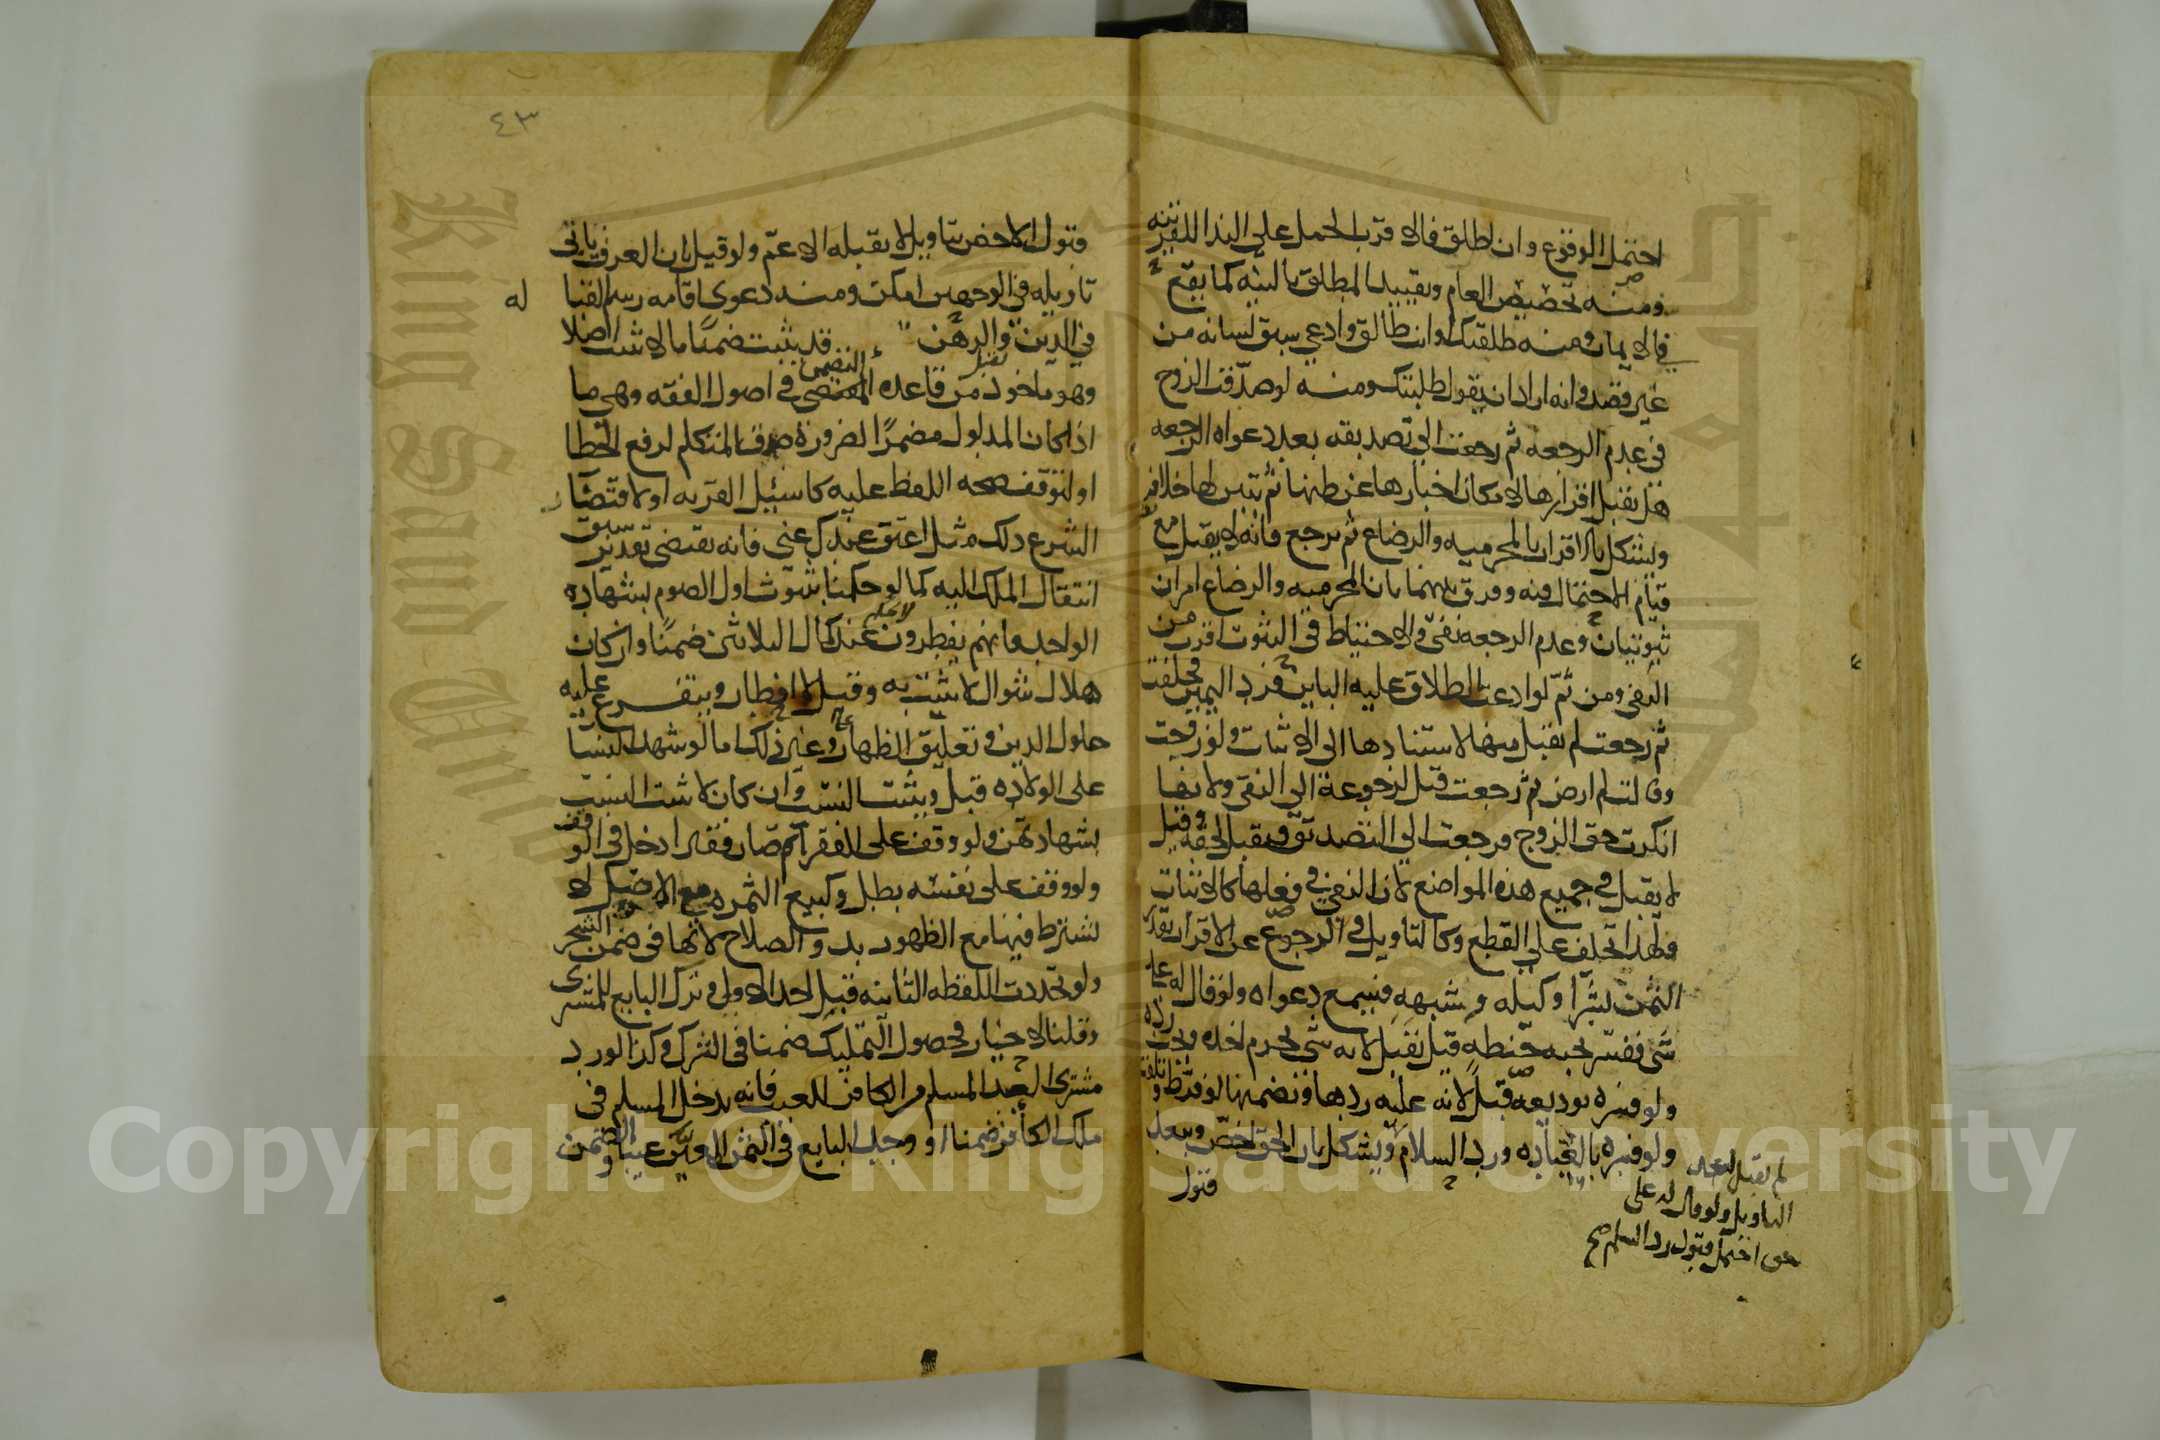 احتمل الوقوع وان اطلق فالاقرب الحمل على الندا للقرينه
ومنه تخصيص العام وتقييد المطلق بالنيه كما يقع
في الايمان ومنه طلقتك او انت طالق وادعى سبق لسانه من
غير قصد وانه اراد ان يقول طلبتك ومنه لو صدقت الزوج
في عدم الرجعه ثم رجعت الى تصديقه بعد دعواه الرجعه
هل يقبل اقرارها لامكان اخبارها عن ظنها ثم تبين لها خلافه
ويشكل بالاقرار بالمحرميه والرضاع ثم يرجع فانه لا يقبل مع
قيام الاحتمال فيه وفرق بينهما بان المحرميه والرضاع امران
ثبوتيان وعدم الرجعه نفي والاحتياط في الثبوت اقرب من
النفي ومن ثم لو ادعت الطلاق عليه الباين فرد اليمين فحلفت
ثم رجعت لم يقبل منها لاستنادها الى الاثبات ولو زوجت
وقالت لم ارض ثم رجعت قبل لرجوعه الى النفي ولانها
انكرت حق الزوج فرجعت الى التصديق فيقبل لحقه وقيل
لا يقبل في جميع هذه المواضع لان النفي في فعلها كالاثبات
ولهذا تحلف على القطع وكالتاويل في الرجوع عن الاقرار بقدر
الثمن لشرا وكيله وشبهه فيسمع دعواه ولو قال له علي
شي ففسر بحبه حنطه قيل يقبل لانه شي يحرم اخذه ويجب رده
ولو فسره بوديعه قبل لانه عليه ردها وتضمنها لو فرط وتلفت
ولو فسره بالعياده ورد السلام ويشكل بان الحق اخص ويبعد
لم يقبل لبعد
التاويل ولو قال له علي
حق احتمل قبول رد السلام صح
قبول
٤٣
قبول الاخص بتاويل لا يقبله الاعم ولو قيل بان العرف يابى
تاويله في الوجهين امكن ومنه دعوى اقامه رسم القبا له
في الدين والرهن قد يثبت ضمنا ما لا يثبت اصلا
وهو ماخوذ من قاعده المقتضى في اصول الفقه وهي ما
اذا كان المدلول مضمرا لضرورة صدق المتكلم لرفع الخطا
او لتوقف صحه اللفظ عليه كاسئيل القريه او لاقتضا
الشرع ذلك مثل اعتق عبدك عني فانه يقتضي تقدير سبق
انتقال الملك اليه كما لو حكمنا بثبوت اول الصوم بشهاده
الواحد فانهم يفطرون عند كمال الثلاثين ضمنا وان كان
هلال شوال لا يثبت به وقيل لا افطار ويتفرع عليه
حلول الدين وتعليق الظهار وغير ذلك اما لو شهد النسا
على الولاده قبل ويثبت النسب وان كان لا يثبت النسب
بشهادتهن ولو وقف على الفقرا ثم صار فقيرا دخل في الوقف
ولو وقف على نفسه بطل وكبيع الثمره مع الاصل لا
يشترط فيها مع الظهور بدو الصلاح لانها في ضمن الشجر
ولو تجددت اللفظه الثانيه قبل اخذ الاولى وترك البايع للمشتري
وقلنا لا خيار لحصول التمليك ضمنا في الترك وكذا لو رد
مشتري العبد المسلم من الكافر للعيب فانه يدخل المسلم في
ملك الكافر ضمنا او وجد البايع في الثمن المعين عيبا